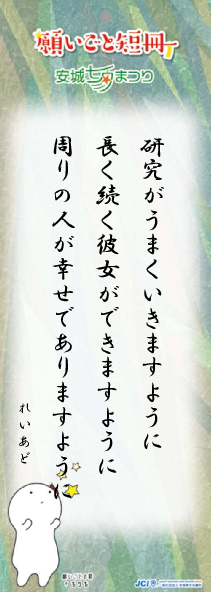 願いごと短冊
安城七夕まつり
研究がうまくいきますように
長く続く彼女ができますように
周りの人が幸せでありますように
れいあど
JCI